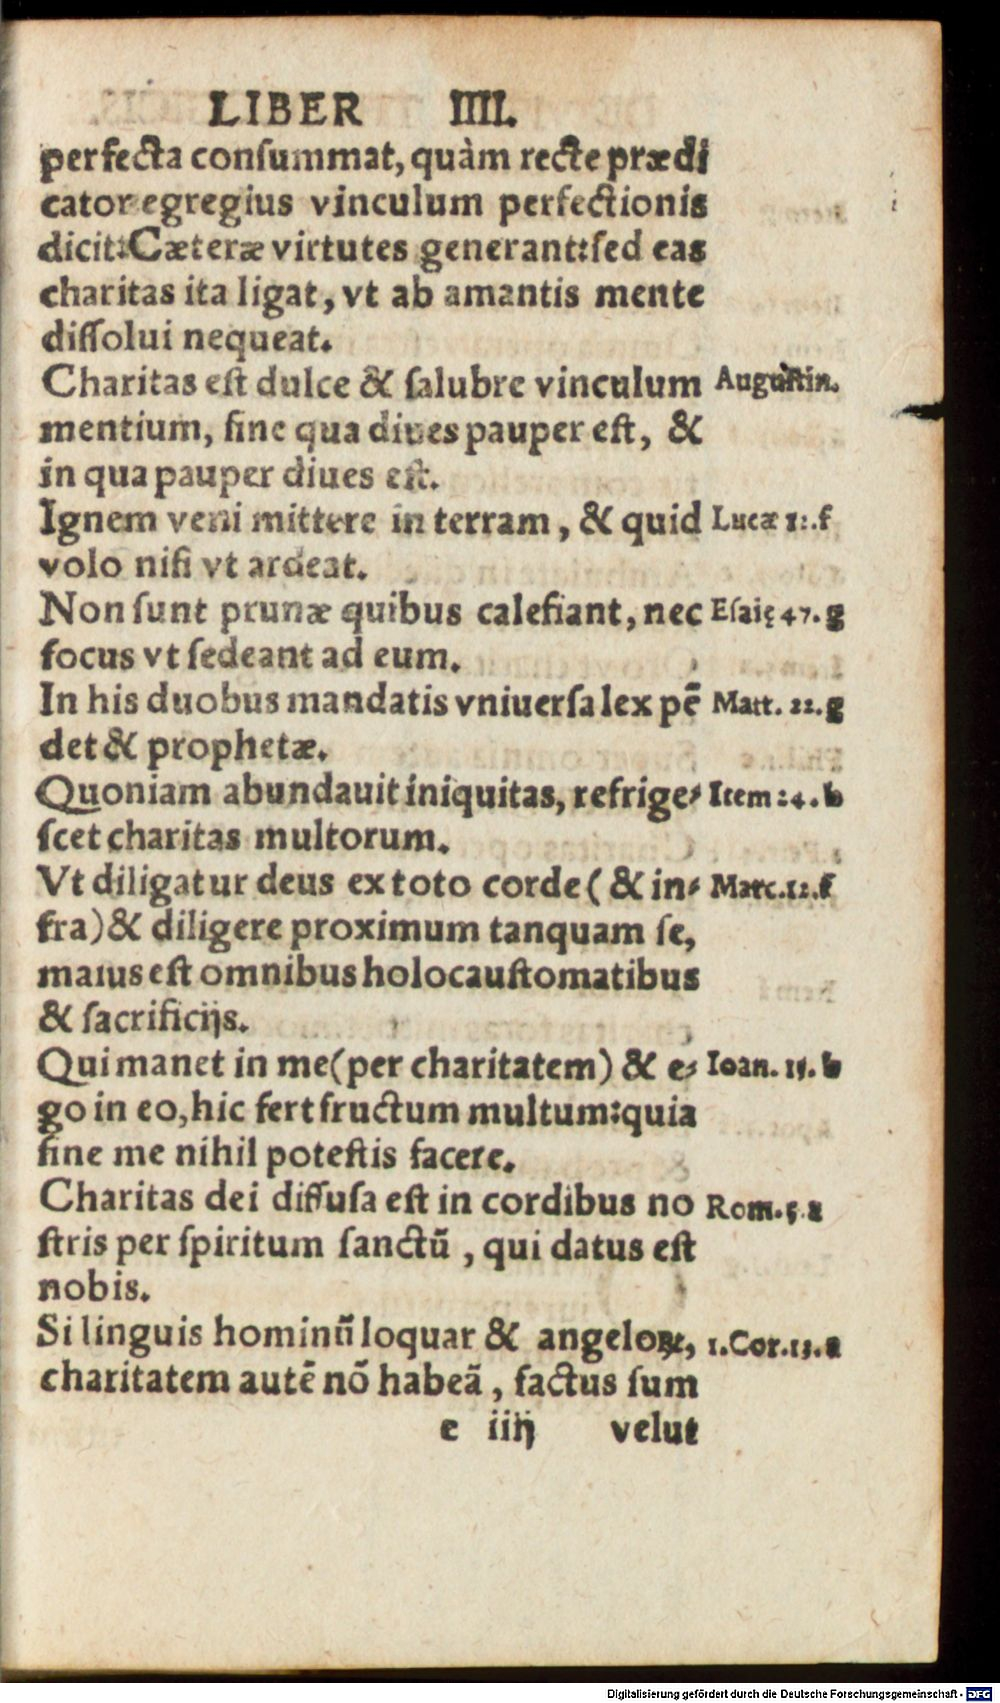 LIBER IIII.
perfecta conſummat, quàm recte prædi
cator egregius vinculum perfectionis
dicit: Cæteræ virtutes generant: ſed eas
charitas ita ligat, vt ab amantis mente
diſſolui nequeat.
Charitas eſt dulce & ſalubre vinculum Auguſtin.
mentium, ſine qua diues pauper eſt, &
in qua pauper diues eſt.
Ignem veni mittere in terram, & quid Lucæ 12.f
volo niſi vt ardeat.
Non ſunt prunæ quibus calefiant, nec Eſaię 47.g
focus vt ſedeant ad eum.
In his duobus mandatis vniuerſa lex pē Matt. 22.g
det & prophetæ.
Quoniam abundauit iniquitas, refrige⸗ Item 24.b
ſcet charitas multorum.
Vt diligatur deus ex toto corde (& in⸗ Marc.12.f
fra) & diligere proximum tanquam ſe,
maius eſt omnibus holocauſtomatibus
& ſacrificijs.
Qui manet in me (per charitatem) & e⸗ Ioan. 15.b
go in eo, hic fert fructum multum: quia
ſine me nihil poteſtis facere.
Charitas dei diffuſa eſt in cordibus no Rom.5.a
ſtris per ſpiritum ſanctū, qui datus eſt
nobis.
Si linguis hominū loquar & angeloꝝ, 1.Cor.13.a
charitatem autē nō habeā, factus ſum
e iiij velut
Digitalisierung gefördert durch die Deutsche Forschungsgemeinschaft - DFG